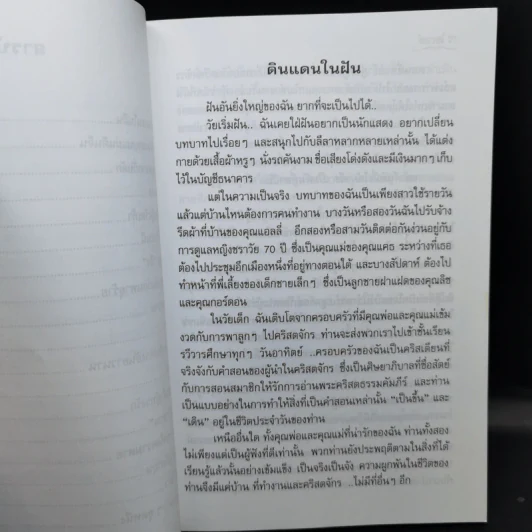 ดินแดนในฝัน
ฝันอันยิ่งใหญ่ของฉัน ยากที่จะเป็นไปได้..
วัยเริ่มฝัน.. ฉันเคยใฝ่ฝันอยากเป็นนักแสดง อยากเปลี่ยน
บทบาทไปเรื่อยๆ และสนุกไปกับลีลาหลากหลายเหล่านั้น ได้แต่ง
กายด้วยเสื้อผ้าหรูๆ นั่งรถคันงาม ชื่อเสียงโด่งดังและมีเงินมากๆ เก็บ
ไว้ในบัญชีธนาคาร
แต่ในความเป็นจริง บทบาทของฉันเป็นเพียงสาวใช้รายวัน
แล้วแต่บ้านไหนต้องการคนทำงาน บางวันหรือสองวันฉันไปรับจ้าง
รีดผ้าที่บ้านของคุณแอลลี่ อีกสองหรือสามวันติดต่อกันง่วนอยู่กับ
การดูแลหญิงชราวัย 70 ปี ซึ่งเป็นคุณแม่ของคุณแคธ ระหว่างที่เธอ
ต้องไปประชุมอีกเมืองหนึ่งที่อยู่ทางตอนใต้ และบางสัปดาห์ ต้องไป
ทำหน้าที่พี่เลี้ยงของเด็กชายเล็กๆ ซึ่งเป็นลูกชายฝาแฝดของคุณลิซ
และคุณกอร์ดอน
ในวัยเด็ก ฉันเติบโตจากครอบครัวที่มีคุณพ่อและคุณแม่เข้ม
งวดกับการพาลูกๆ ไปคริสตจักร ท่านจะส่งพวกเราไปเข้าชั้นเรียน
รวีวารศึกษาทุกๆ วันอาทิตย์ ..ครอบครัวของฉันเป็นคริสเตียนที่
จริงจังกับคำสอนของผู้นำในคริสตจักร ซึ่งเป็นศิษยาภิบาลที่ซื่อสัตย์
กับการสอนสมาชิกให้รักการอ่านพระคริสตธรรมคัมภีร์ และท่าน
เป็นแบบอย่างในการทำให้สิ่งที่เป็นคำสอนเหล่านั้น "เป็นขึ้น" และ
"เดิน" อยู่ในชีวิตประจำวันของท่าน
เหนืออื่นใด ทั้งคุณพ่อและคุณแม่ที่น่ารักของฉัน ท่านทั้งสอง
ไม่เพียงแต่เป็นผู้ฟังที่ดีเท่านั้น พวกท่านยังประพฤติตามในสิ่งที่ได้
เรียนรู้แล้วนั้นอย่างเข้มแข็ง เป็นจริงเป็นจัง ความผูกพันในชีวิตของ
ท่านจึงมีแค่บ้าน ที่ทำงานและคริสตจักร ..ไม่มีที่อื่นๆ อีก